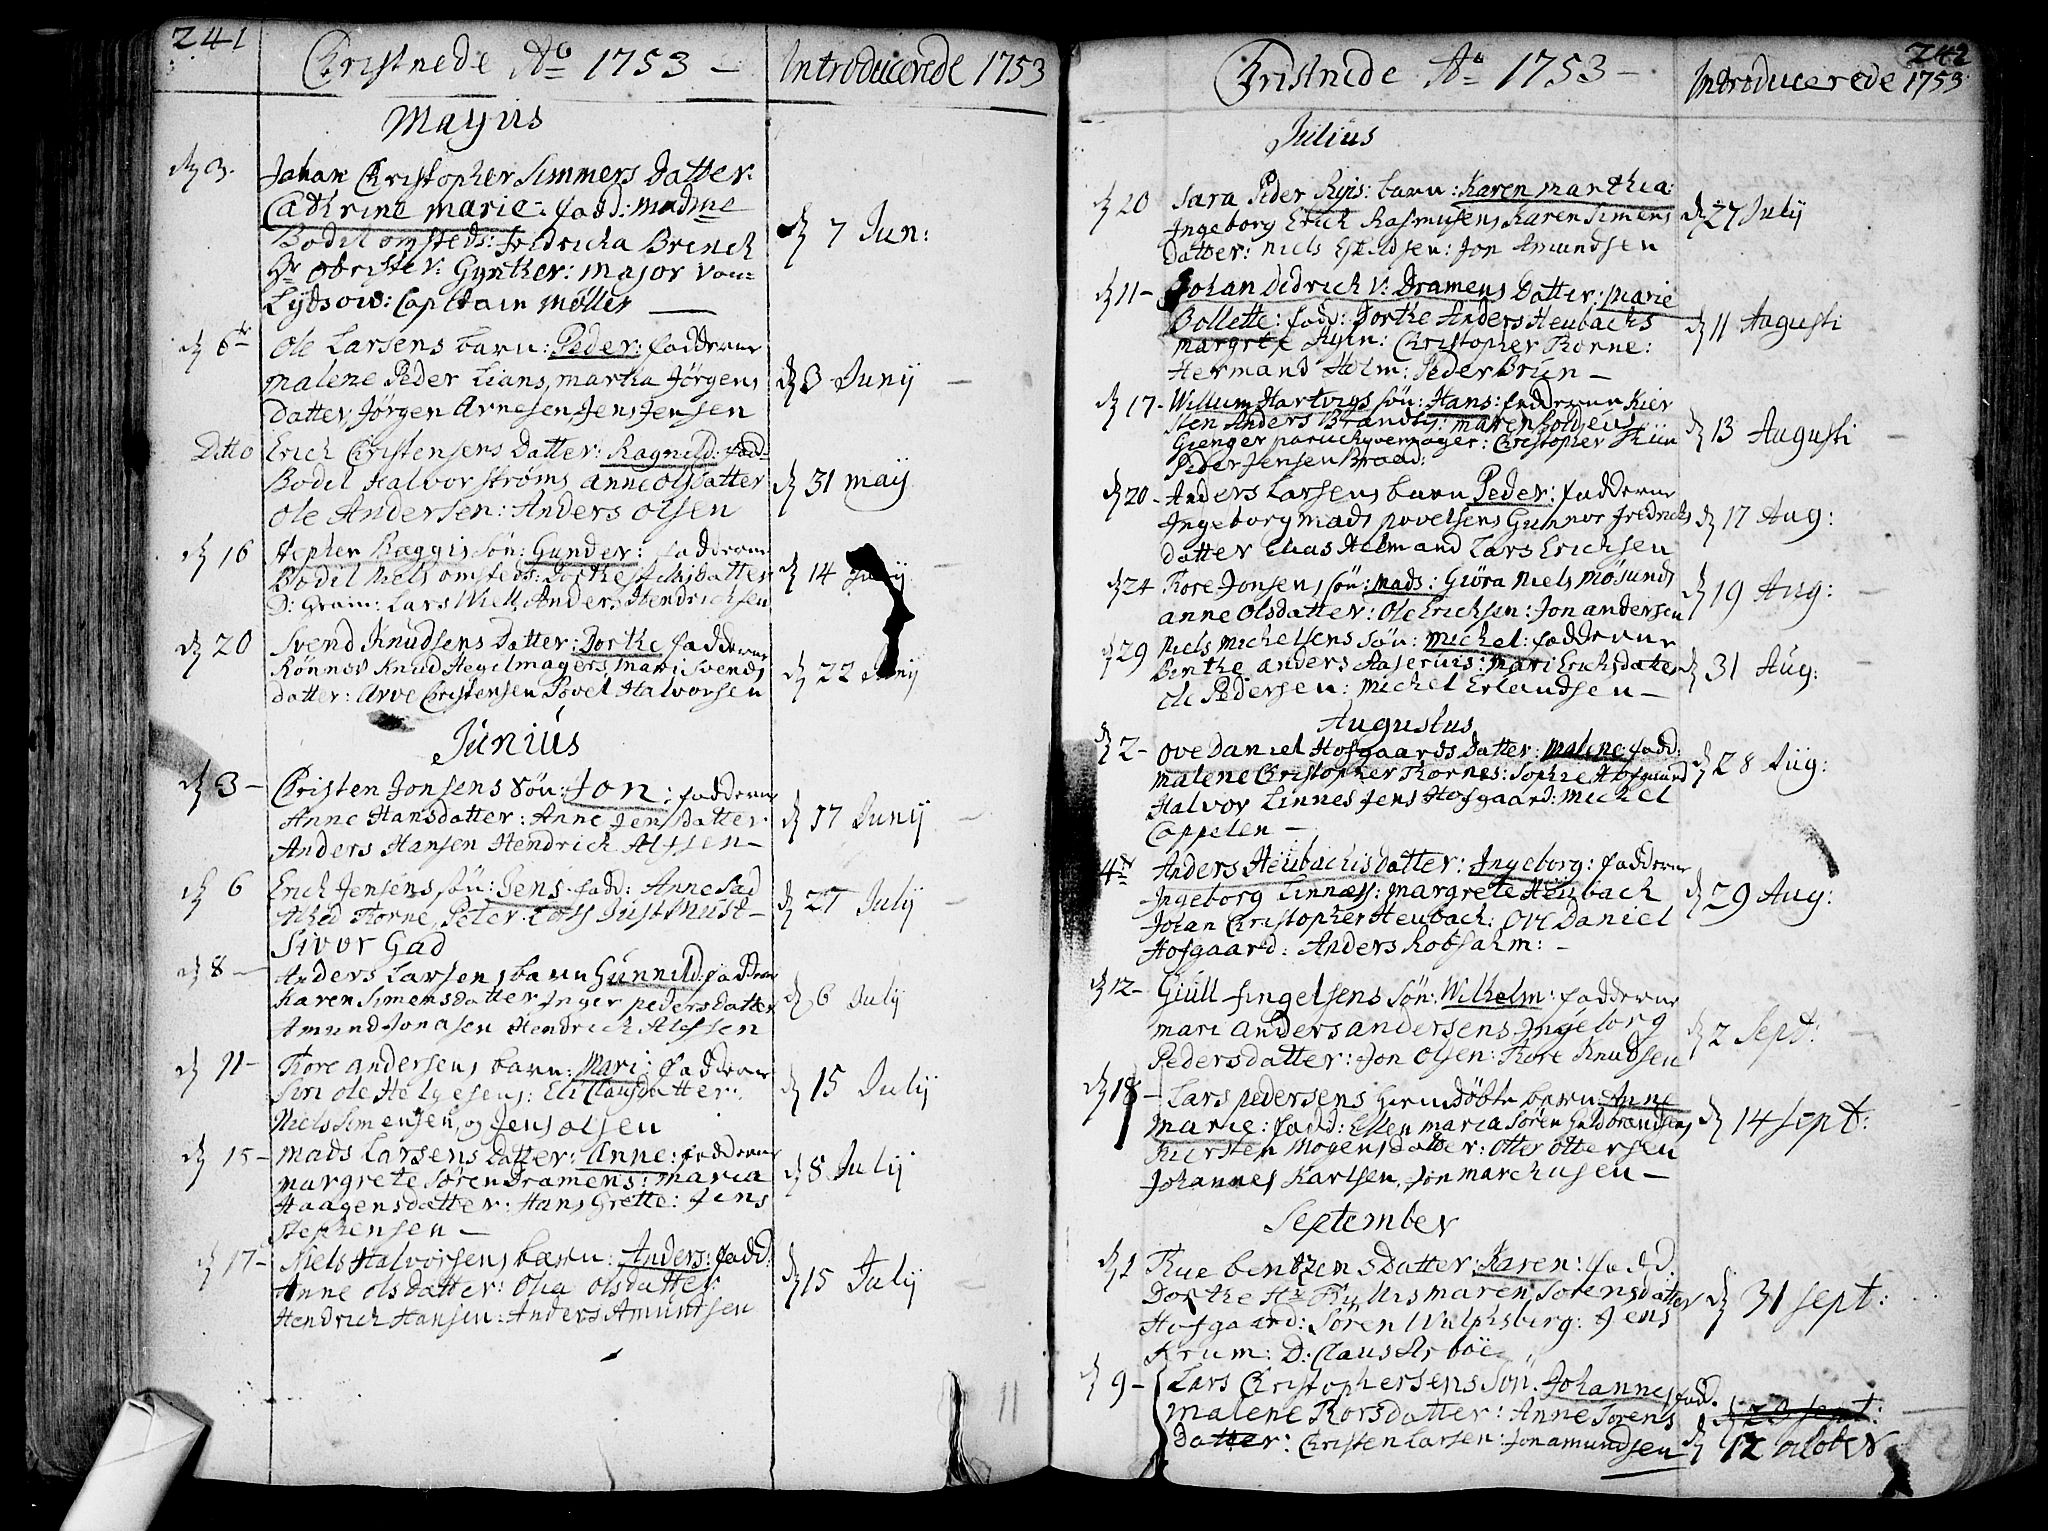 241
Christnede Ao 1753 - Introducerede 1753
Mayus
d 3. Johan Christopher Simmers Datter:
Cathrine marie: fadd: madme
Bodil omsteds: fredricka Brinch d 7 Jun:
Hr obrister: Gynther: major von
Lÿtsow: Capitain Møller
d 6te Ole Larsens barn: Peder: fadderne
malene Peder Lians, martha Jørgens d 3 Junij
datter, Jørgen Arnesen, Jens Jensen
Ditto Erich Christensens Datter: Ragnild: fadd
Bodil Halvor strøms anne olsdatter d 31 maij
Ole Andersen: Anders olsen
d 16 Stephen Bøggis søn: Gunder: fadderne
Bodil Niels omsteds: Dorthe datter d 14
D: Gram: Lars Wiell, Anders Hendrichsen
d 20 Svend Knudsens Datter: Dorthe fadderne
Rønnev Knud Hegelmagers, mari Svends d 22 Junij
datter: Arve Christensen Povel Halvorsen
Junius
d 3 - Christen Jonsens søn: Jon: fadderne
Anne Hansdatter: Anne Jensdatter d 17 Junij
Anders Hansen Hendrich Alfsen -
d 6 Erich Jensens søn: Jens fadd: Anne Sad
Thorne, Peter Just Must - d 27 Julij
Sivor Gad
d 8 - Anders Larsens barn Gunnild: fadderne
Karen Simensdatter Inger pedersdatter d 6 Julij
Amund Jonasen Hendrich Alfsen
d 11 - Thore andersens barn: Mari: fadderne
Siri ole Helgesens: Eli Clausdatter: d 15 Julij
Niels Simensen, og Jens olsen
d 15 - Mads Larsens Datter: Anne: fadderne
margrete Søren Dramens: maria d 8 Julij
Haagensdatter: Hans Grette: Jens
Stephensen -
d 17 - Niels Halvorsens barn: Anders: fadd:
Anne olsdatter: Olea olsdatter d 15 Julij
Hendrich Hansen: Anders Amundsen
11
242
Christnede Ao 1753 - Introducerede 1753
Julius
d 20 Sara Peder Ryis: barn: Karen marthia:
Ingeborg Erich Rasmusens Karen Simens d 27 Julij
datter: niels Eskildsen: Jon Amundsen
d 11 - Johan Didrich v: Dramens Datter: marie
Bollette: fadd: Dorthe Anders Heubachs d 11 Augusti
margrete Ryin: Christopher Thorne:
Hermand Holm: Peder Brün -
d 17 - Willum Hartvigs søn: Hans: fadderne Kier
sten Anders Brandts: maren Boldens d 13 Augusti
Gienger paruchqvemager: Christopher
Peder Jensen Braad:
d 20 - Anders Larsens barn Peder: fadderne
Ingeborg mads povelsens Gunnor fredrichs d 17 Aug:
datter Elias Helm and Lars Erichsen
d 24 Thore Jonsens søn: mads: Giøra Niels Møsunds
anne olsdatter: Ole Erichsen: Jon andersen d 19 Aug:
d 29 Niels Michelsens søn: Michel: fadderne
Benthe anders Aaseruis: mari Erichsdatter d 31 Aug:
ole Pedersen: Michel Erlandsen -
Augustus
d 2 - Ove Daniel Hofgaards Datter: Malene: fadd:
malene Christopher Thornes: Sophie Hofgaard d 28 Aug:
Halvor Linnes Jens Hofgaard: Michel
Cappelen -
4te Anders Heubachis Datter: Ingeborg: fadderne
Ingeborg Linnes: margrete Heubach d 29 Aug:
Johan Christopher Heubach: Ove Daniel
Hofgaard: Anders Robsahm: -
d 12 - Giüll Jngelsens søn: Wilhelm: fadderne
mari anders andersens, Ingeborg d 2 Sept:
Pedersdatter: Jon Olsen: Thore Knudsen
d 18 - Lars pedersens hiemdøbte barn: Anne
Marie: fadd: Ellen maria Søren Guldbrandsens d 14 Sept:
Kiersten Mogensdatter: Otte ottersen
Johannes Karlsen, Jon marchusen -
September
d 1 Rue bentzens Datter: Karen: fadd.
Dorthe maren Sørensdatter d 31 sept:
Hofgaard: Søren Wulphsberg: Jens
Krum: D: Claus Asbøe
d 9 - Lars Christophersens søn: Johannes fadd.
Malene Thorsdatter: Anne Sørens d 23 sept:
datter: Christen Larsen: Jon amundsen d 12 october